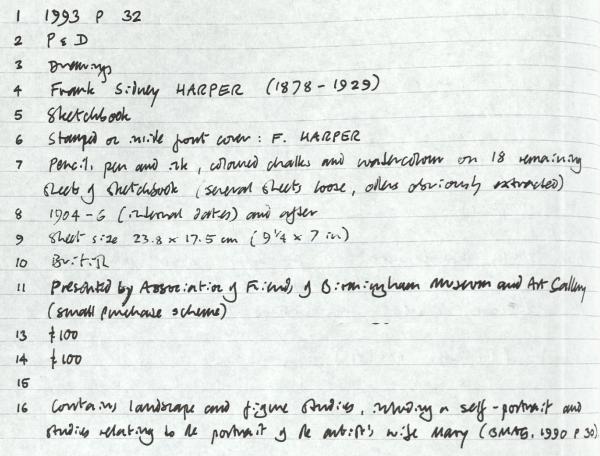 1 1993 P 32
2 P & D
3 Drawings
4 Frank Sidney HARPER (1878-1929)
5 Sketchbook
6 Stamped on inside front cover: F. HARPER
7 Pencil, pen and ink, coloured chalks and watercolour on 18 remaining
sheets of sketchbook (several sheets loose, others obviously extracted)
8 1904-6 (internal dates) and after
9 Sheet size 23.8 x 17.5 cm (9 1/4 x 7 in)
10 British
11 Presented by Association of Friends of Birmingham Museum and Art Gallery
(small purchase scheme)
13 £100
14 £100
15
16 Contains landscape and figure studies, including a self-portrait and
studies relating to the portrait of the artist's wife Mary (BMAG, 1990 P 30)